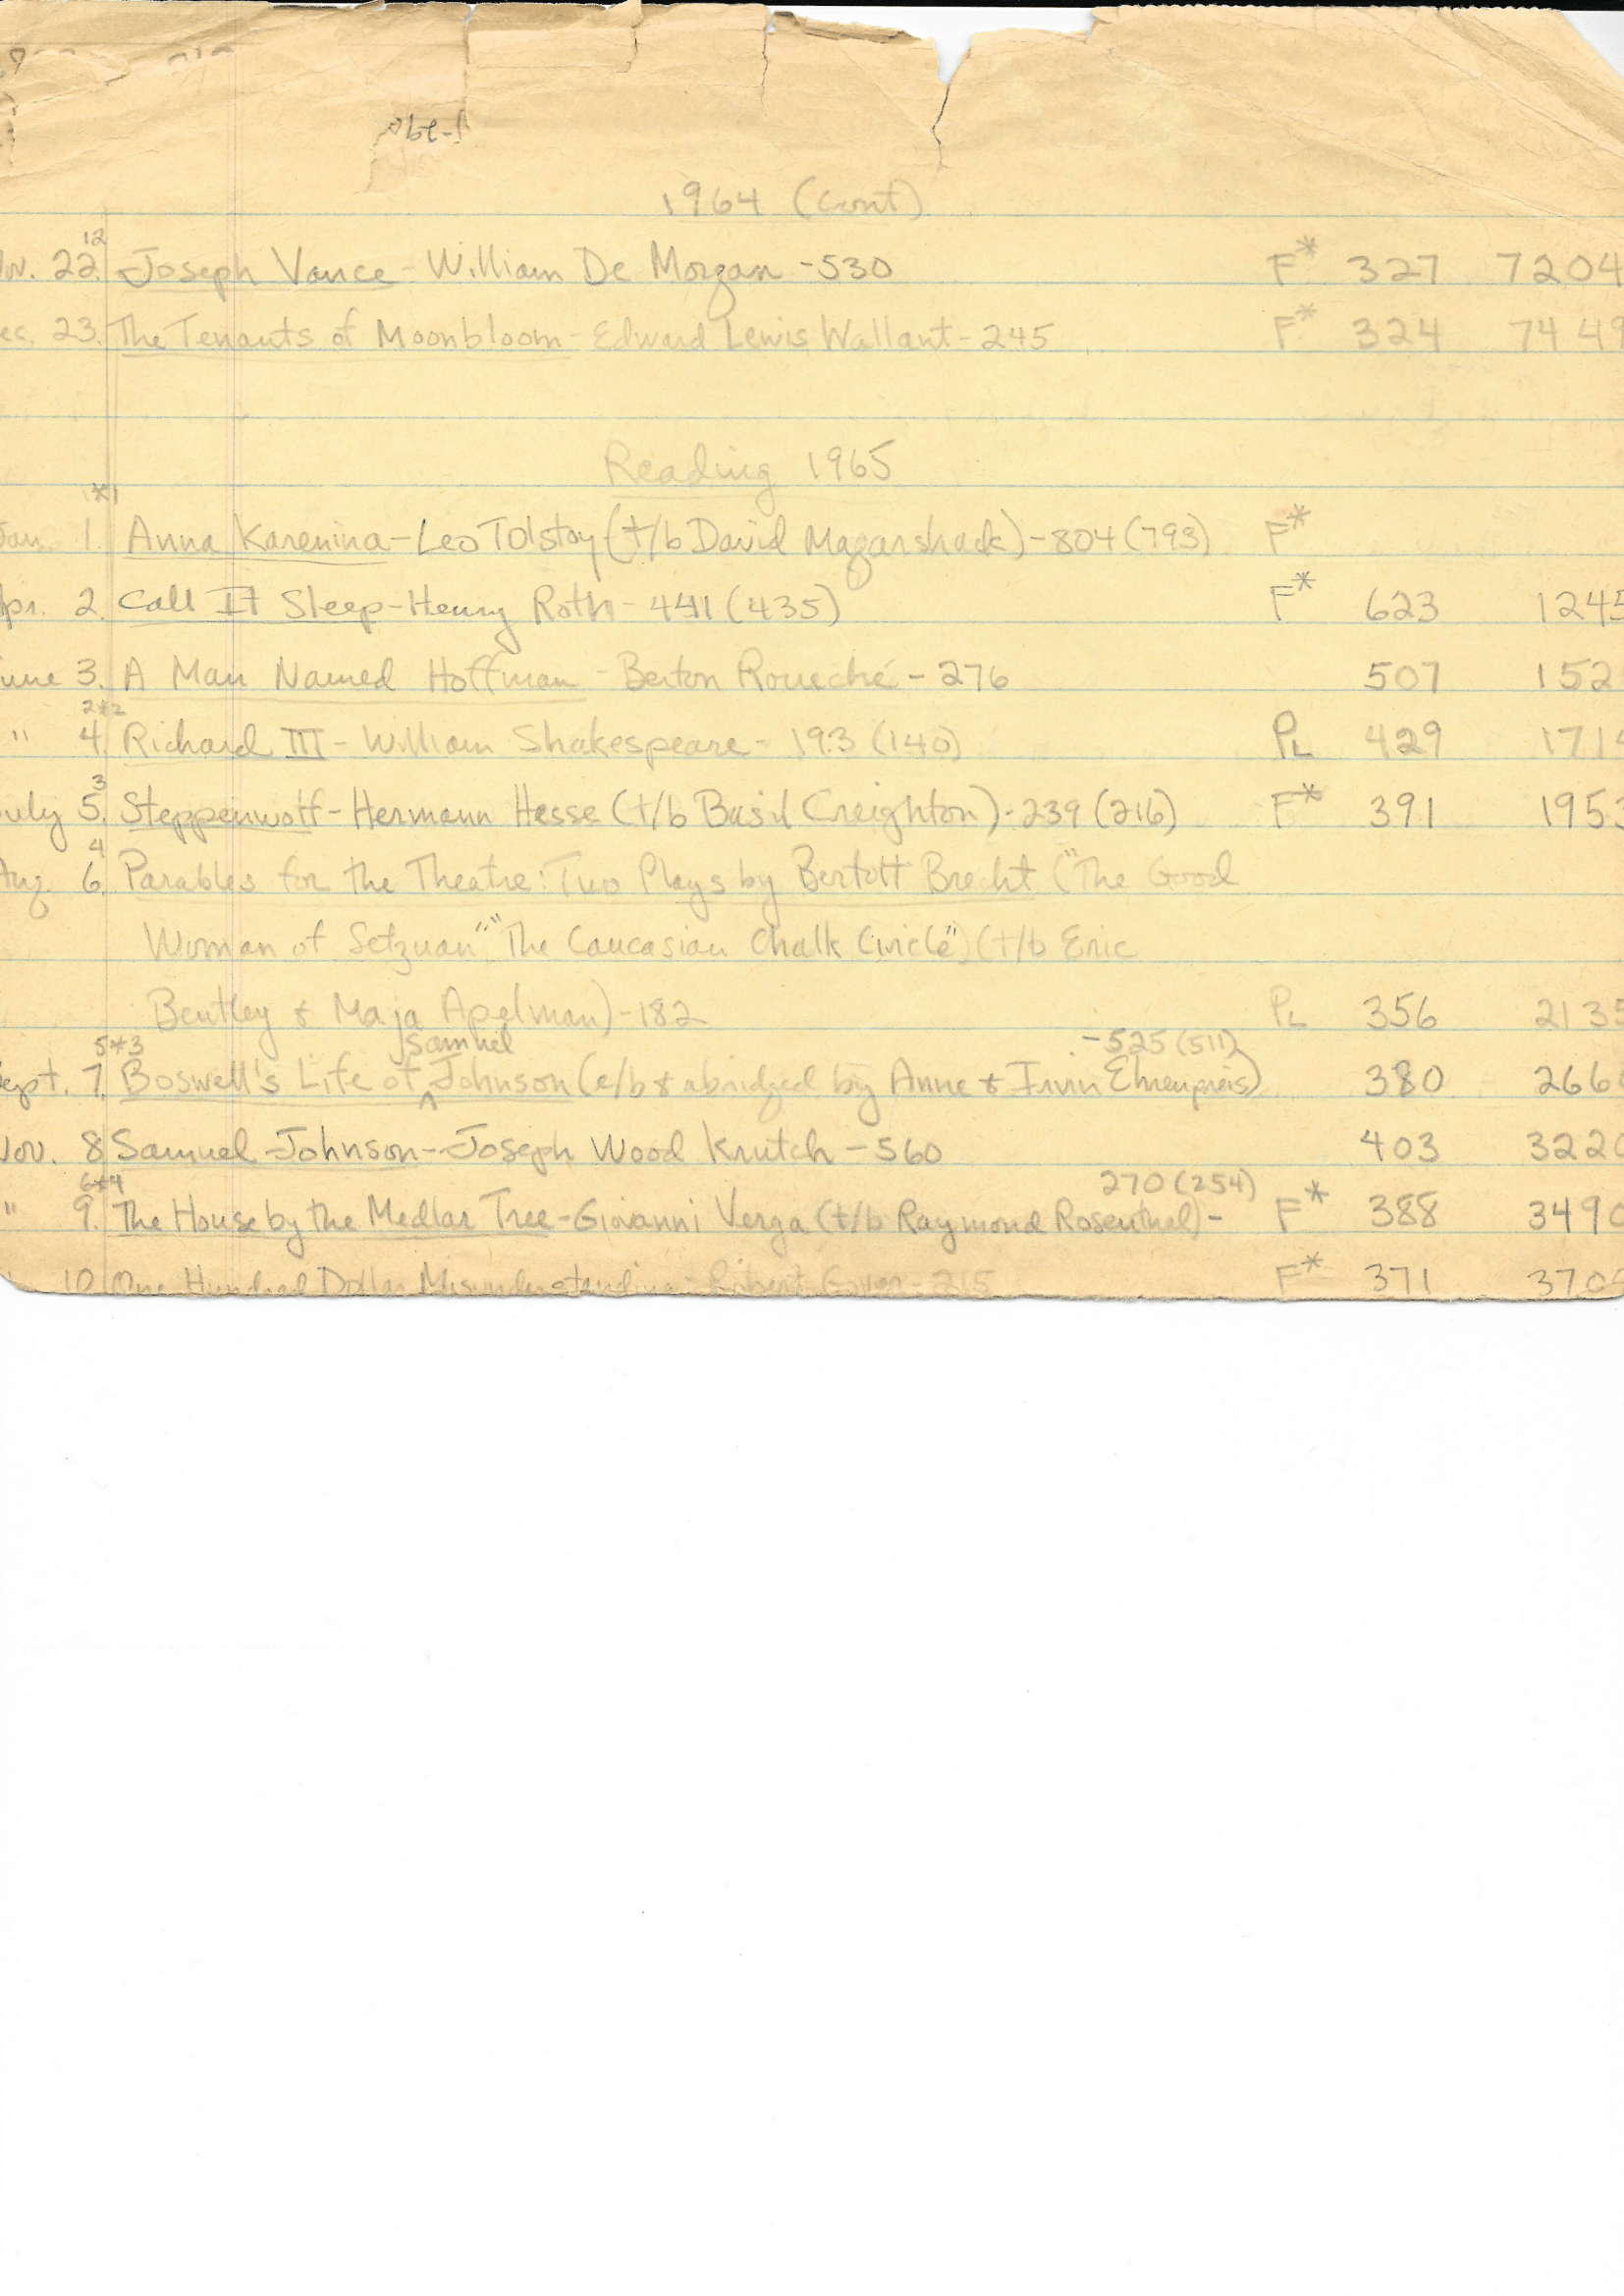 1964 (cont)
12
22. Joseph Vance - William De Morgan - 530 F* 327 7204
23. The Tenants of Moonbloom - Edward Lewis Wallant - 245 F* 324 7449
Reading 1965
*1
Jan. 1. Anna Karenina - Leo Tolstoy (t/b David Magarshack) - 804 (793) F*
2. Call It Sleep - Henry Roth - 441 (435) F* 623 1245
3. A Man Named Hoffman - Berton Roueché - 276 507 152
2*2
" 4. Richard III - William Shakespeare - 193 (140) PL 429 171
3
July 5. Steppenwolf - Hermann Hesse (t/b Basil Creighton) - 239 (216) F* 391 1953
4
Aug. 6. Parables for the Theatre: Two Plays by Bertolt Brecht ("The Good
Woman of Setzuan" "The Caucasian Chalk Circle") (t/b Eric
Bentley & Maja Apelman) - 182 PL 356 2135
5*3 Samuel - 525 (511)
Sept. 7. Boswell's Life of ^ Johnson (e/b & abridged by Anne & Irvin Ehrenpreis) 380 266
Nov. 8 Samuel Johnson - Joseph Wood Krutch - 560 403 3220
6*4 270 (254)
" 9. The House by the Medlar Tree - Giovanni Verga (t/b Raymond Rosenthal) - F* 388 3490
10. One Hundred Dollar Misunderstanding - Robert Gover - 215 F* 371 370